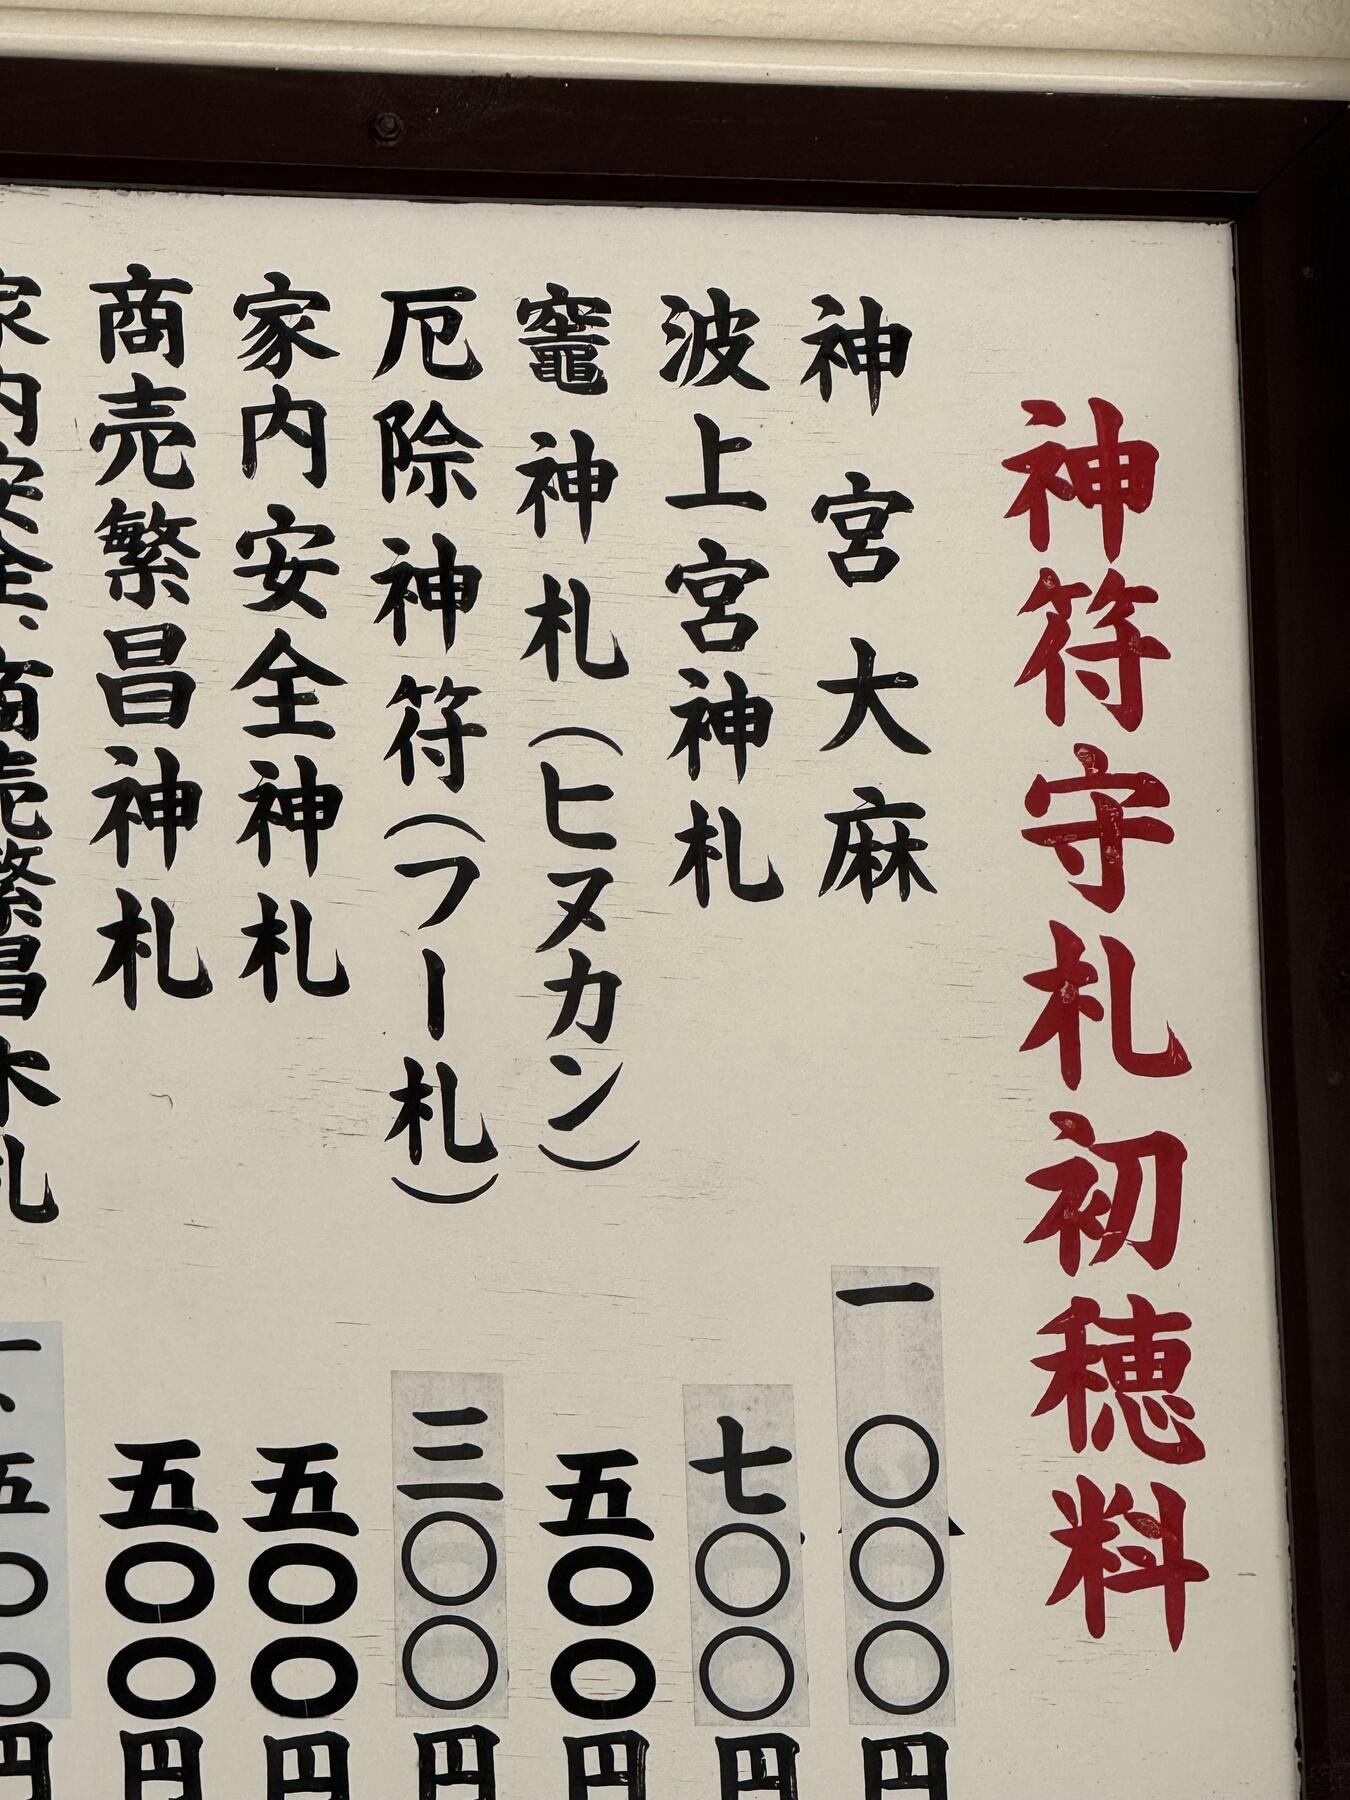 神符守札初穂料
神宮大麻 一〇〇〇円
波上宮神札 七〇〇円
竈神札（ヒヌカン） 五〇〇円
厄除神符（フー札） 三〇〇円
家内安全神札 五〇〇円
商売繁昌神札 五〇〇円
家内安全、商売繁昌木札 一、五〇〇円